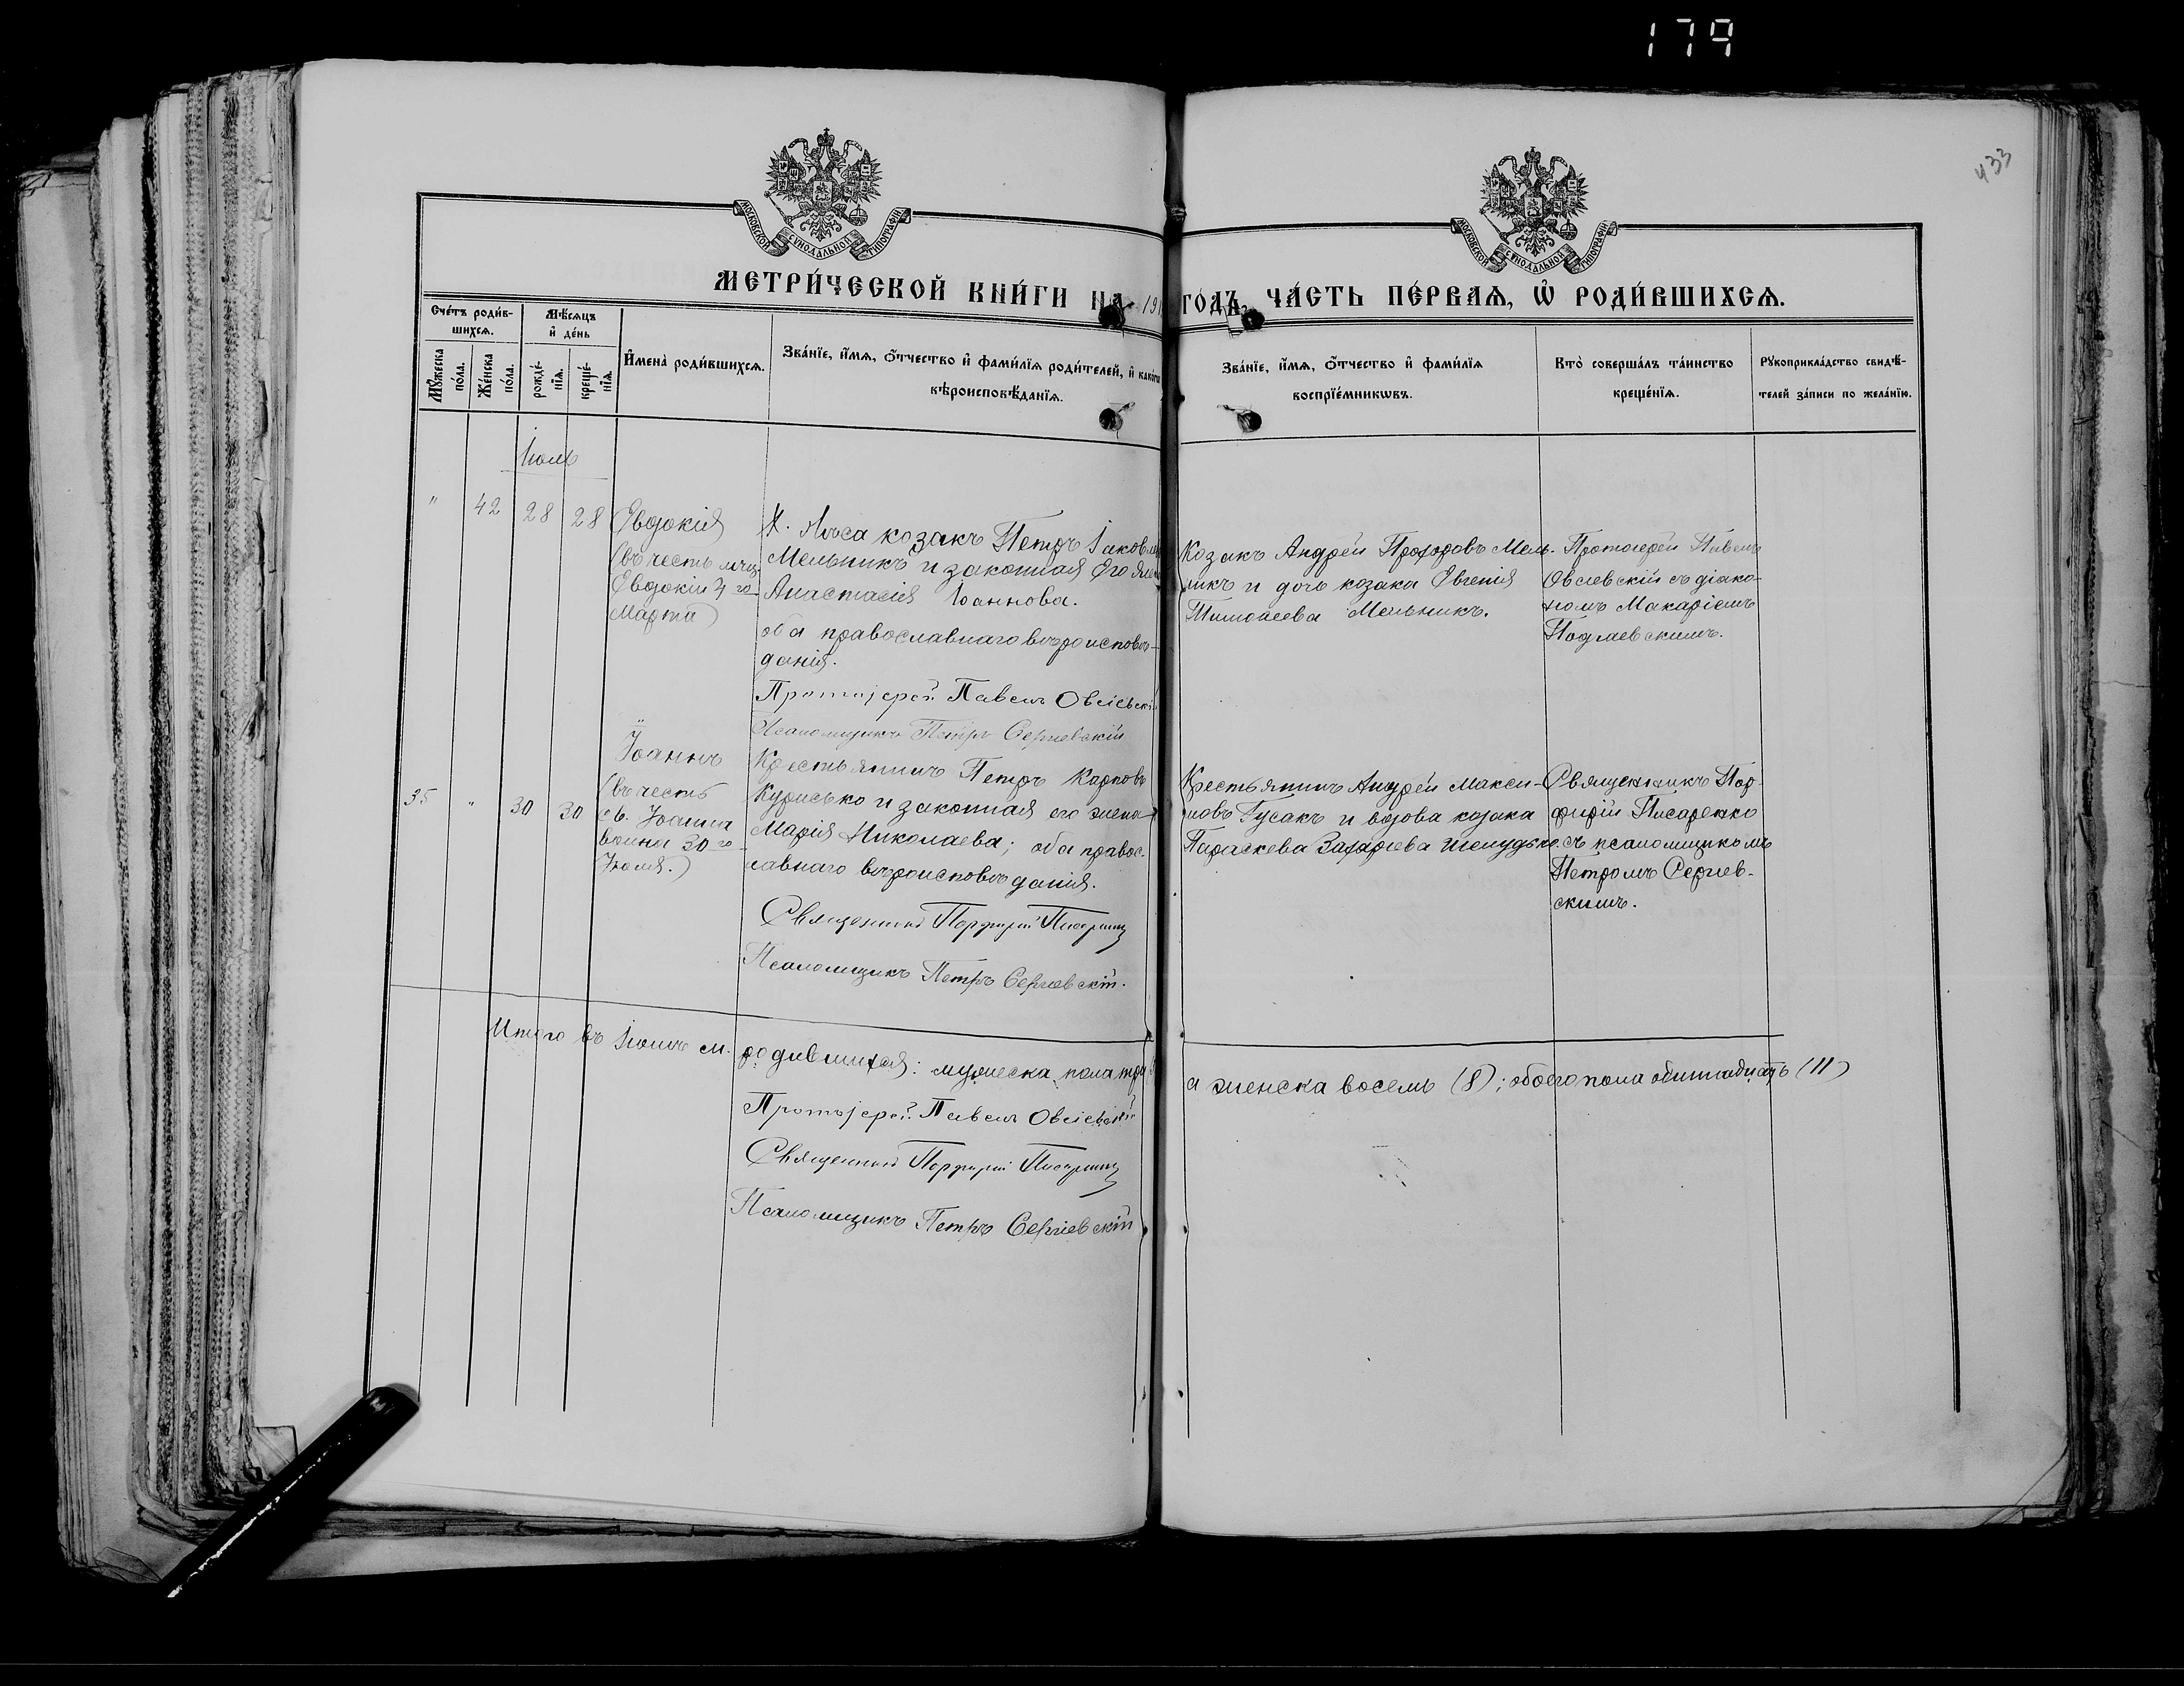 179
433
МОСКОВСКОЙ СѴНОДАЛЬНОЙ ТИПОГРАФІИ
МОСКОВСКОЙ СѴНОДАЛЬНОЙ ТИПОГРАФІИ
МЕТРИ́ЧЕСКОЙ КНИ́ГИ НА 191 ГО́ДЪ, ЧА́СТЬ ПЕ́РВАѦ, Ѡ҆ РОДИ́ВШИХСѦ.
Сче́тъ роди́в-
шихсѧ.
Мꙋ́жеска
по́ла.
Же́нска
по́ла.
Мѣ́сѧцъ
и҆ де́нь
рожде́-
нїѧ.
креще́-
нїѧ.
И҆мена̀ роди́вшихсѧ.
Зва́нїе, и҆́мѧ, ѻ҆́тчество и҆ фами́лїѧ роди́телей, и҆
вѣроисповѣ́данїѧ.
Зва́нїе, и҆́мѧ, ѻ҆́тчество и҆ фами́лїѧ
воспрїе́мникѡвъ.
Кто̀ соверша́лъ та́инство
креще́нїѧ.
Рꙋкоприкла́дство свидѣ́-
телей за́писи по жела́нїю.
Іюль
" 42 28 28
Евдокія
(въ честь мчц.
Евдокіи 4 го
Марта)
Х. Ляса козакъ Петръ Іаковл
Мельникъ и законная его жен
Анастасія Іоаннова.
оба православнаго вѣроисповѣ-
данія.
Протоіерей Павелъ Овсіевскій
Псаломщикъ Петръ Сергіевскій
Козакъ Андрей Прохоровъ Мель-
никъ и дочь козака Евгенія
Тимоѳеева Мельникъ.
Протоіерей Павелъ
Овсіевскій съ діако-
номъ Макаріемъ
35 " 30 30
Іоаннъ
(въ честь
св. Іоанна
воина 30 го
Іюля.)
Крестьянинъ Петръ Карповъ
Курисько и законная его жена
Марія Николаева; оба правос-
лавнаго вѣроисповѣданія.
Священникъ Порфирій Писаренко
Псаломщикъ Петръ Сергіевскій.
Крестьянинъ Андрей Макси-
мовъ Гусакъ и вдова козака
Параскева Захаріева Шелудько.
Священникъ Пор-
фирій Писаренко
съ псаломщикомъ
Петромъ Сергіев-
скимъ.
Итого въ Іюлѣ м. родившихся: мужеска пола три
а женска восемь (8); обоего пола одиннадцать (11)
Протоіерей Павелъ Овсіевскій
Священникъ Порфирій Писаренко
Псаломщикъ Петръ Сергіевскій